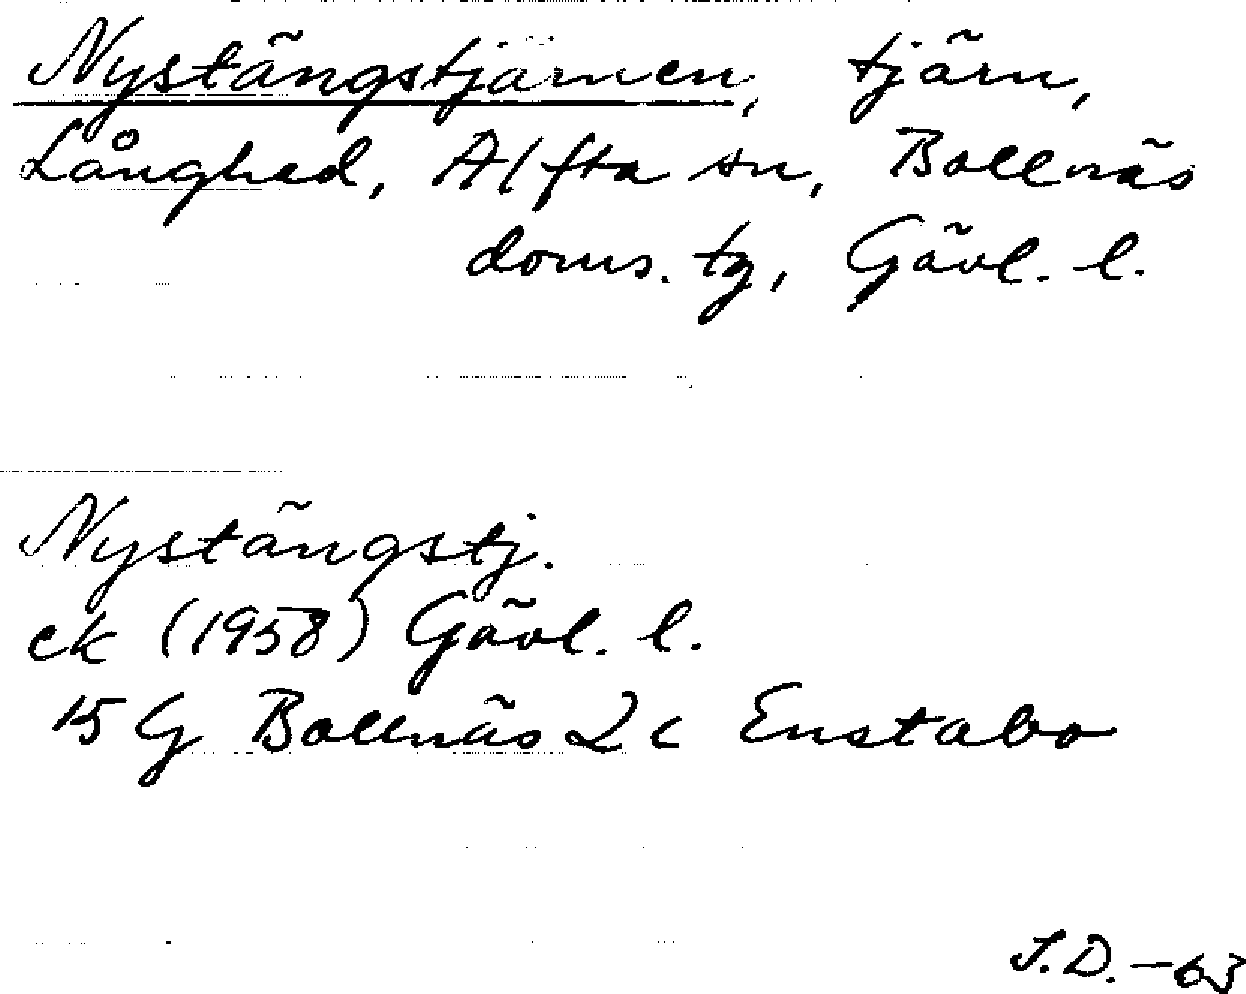 Nystängstjärnen, tjärn,
Långhed, Alfta sn, Bollnäs
doms. tg, Gävl. l.
Nystängstj.
ek (1958) Gävl. l.
15 G Bollnäs 2 c Enstabo
J.D. -63